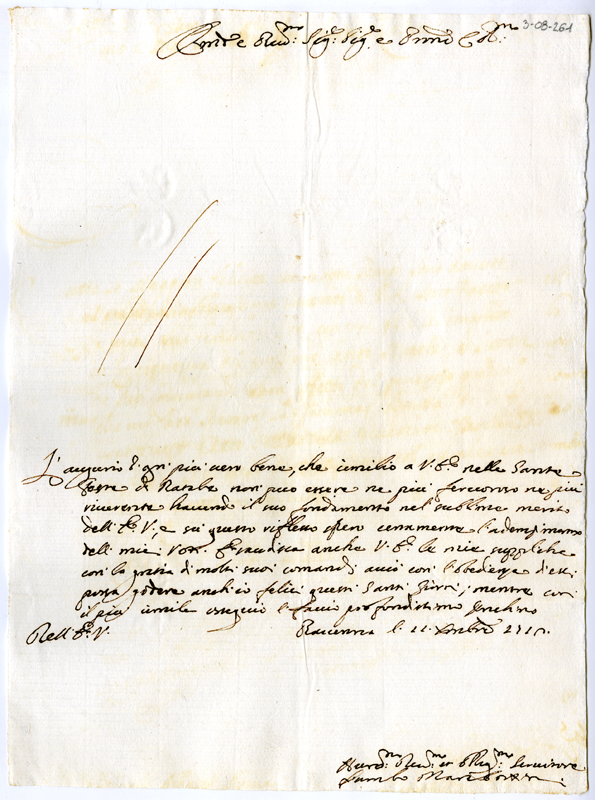 3-08-261
Em.mo e Rev.mo Sig.r Sig.r e P.ron Col.mo
L'augurio d'ogni più vero bene, che umilio a V. E.za nelle Sante
feste di Natale non può essere ne più ne più
riverente havendo il suo fondamento nel sublime merito
dell'E. V., e su questo riflesso spero l'adempimento
dell' miei Voti. Esaudisca anche V. E.za le mie suppliche
con la grazia di molti suoi comandi, acciò con l'obedienza d'essi
possa godere anch'io felici questi Santi Giorni, mentre con
il più umile ossequio le faccio profondissimo Inchino
Dell' E. V.
Ravenna li 11
Servitore